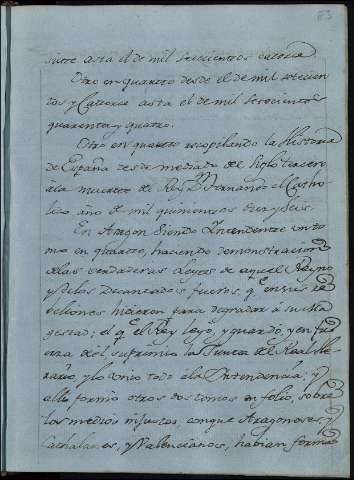 83
siete asta el de mil setecientos catorce
Otro en quarto desde el de mil setecien
tos y Catorce asta el de mil setecientos
quarenta y quatro.
Otro en quarto recopilando la Historia
de España desde mediado del siglo tercero
à la muerte del Rey Dn Fernando el Catho
lico año de mil quinientos diez y seis.
En Aragon siendo Intendente un to
mo en quarto, haciendo demonstracion
de las verdaderas Leyes de aquel Reyno
y de los Decantados fueros, qe en sus re
veliones hicieron para degradar à su Ma
gestad; el qe el Rey leyò, y guardò, y en fu
erza del suprimio la Junta del Real
y lo unio todo à la Intendencia; y
alli formò otros dos tomos en folio, sobre
los medios injustos, conque Aragoneses, y
Cathalanes, y Valencianos, havian forma